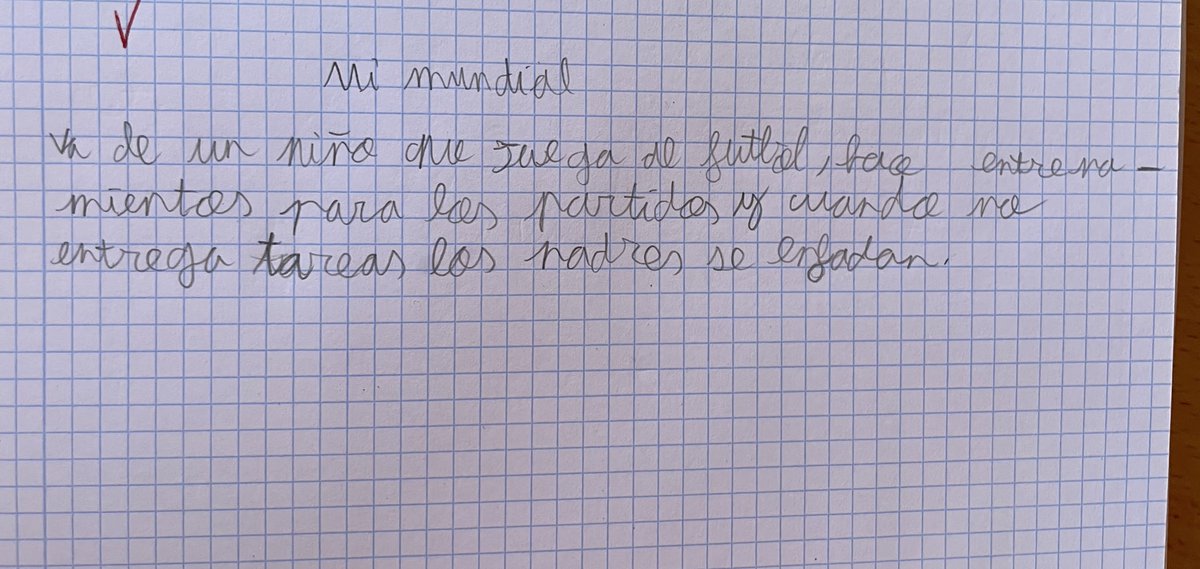 Mi mundial
Va de un niño que juega de futbol, hace entrena-
mientos para los partidos y cuando no
entrega tareas los padres se enfadan.